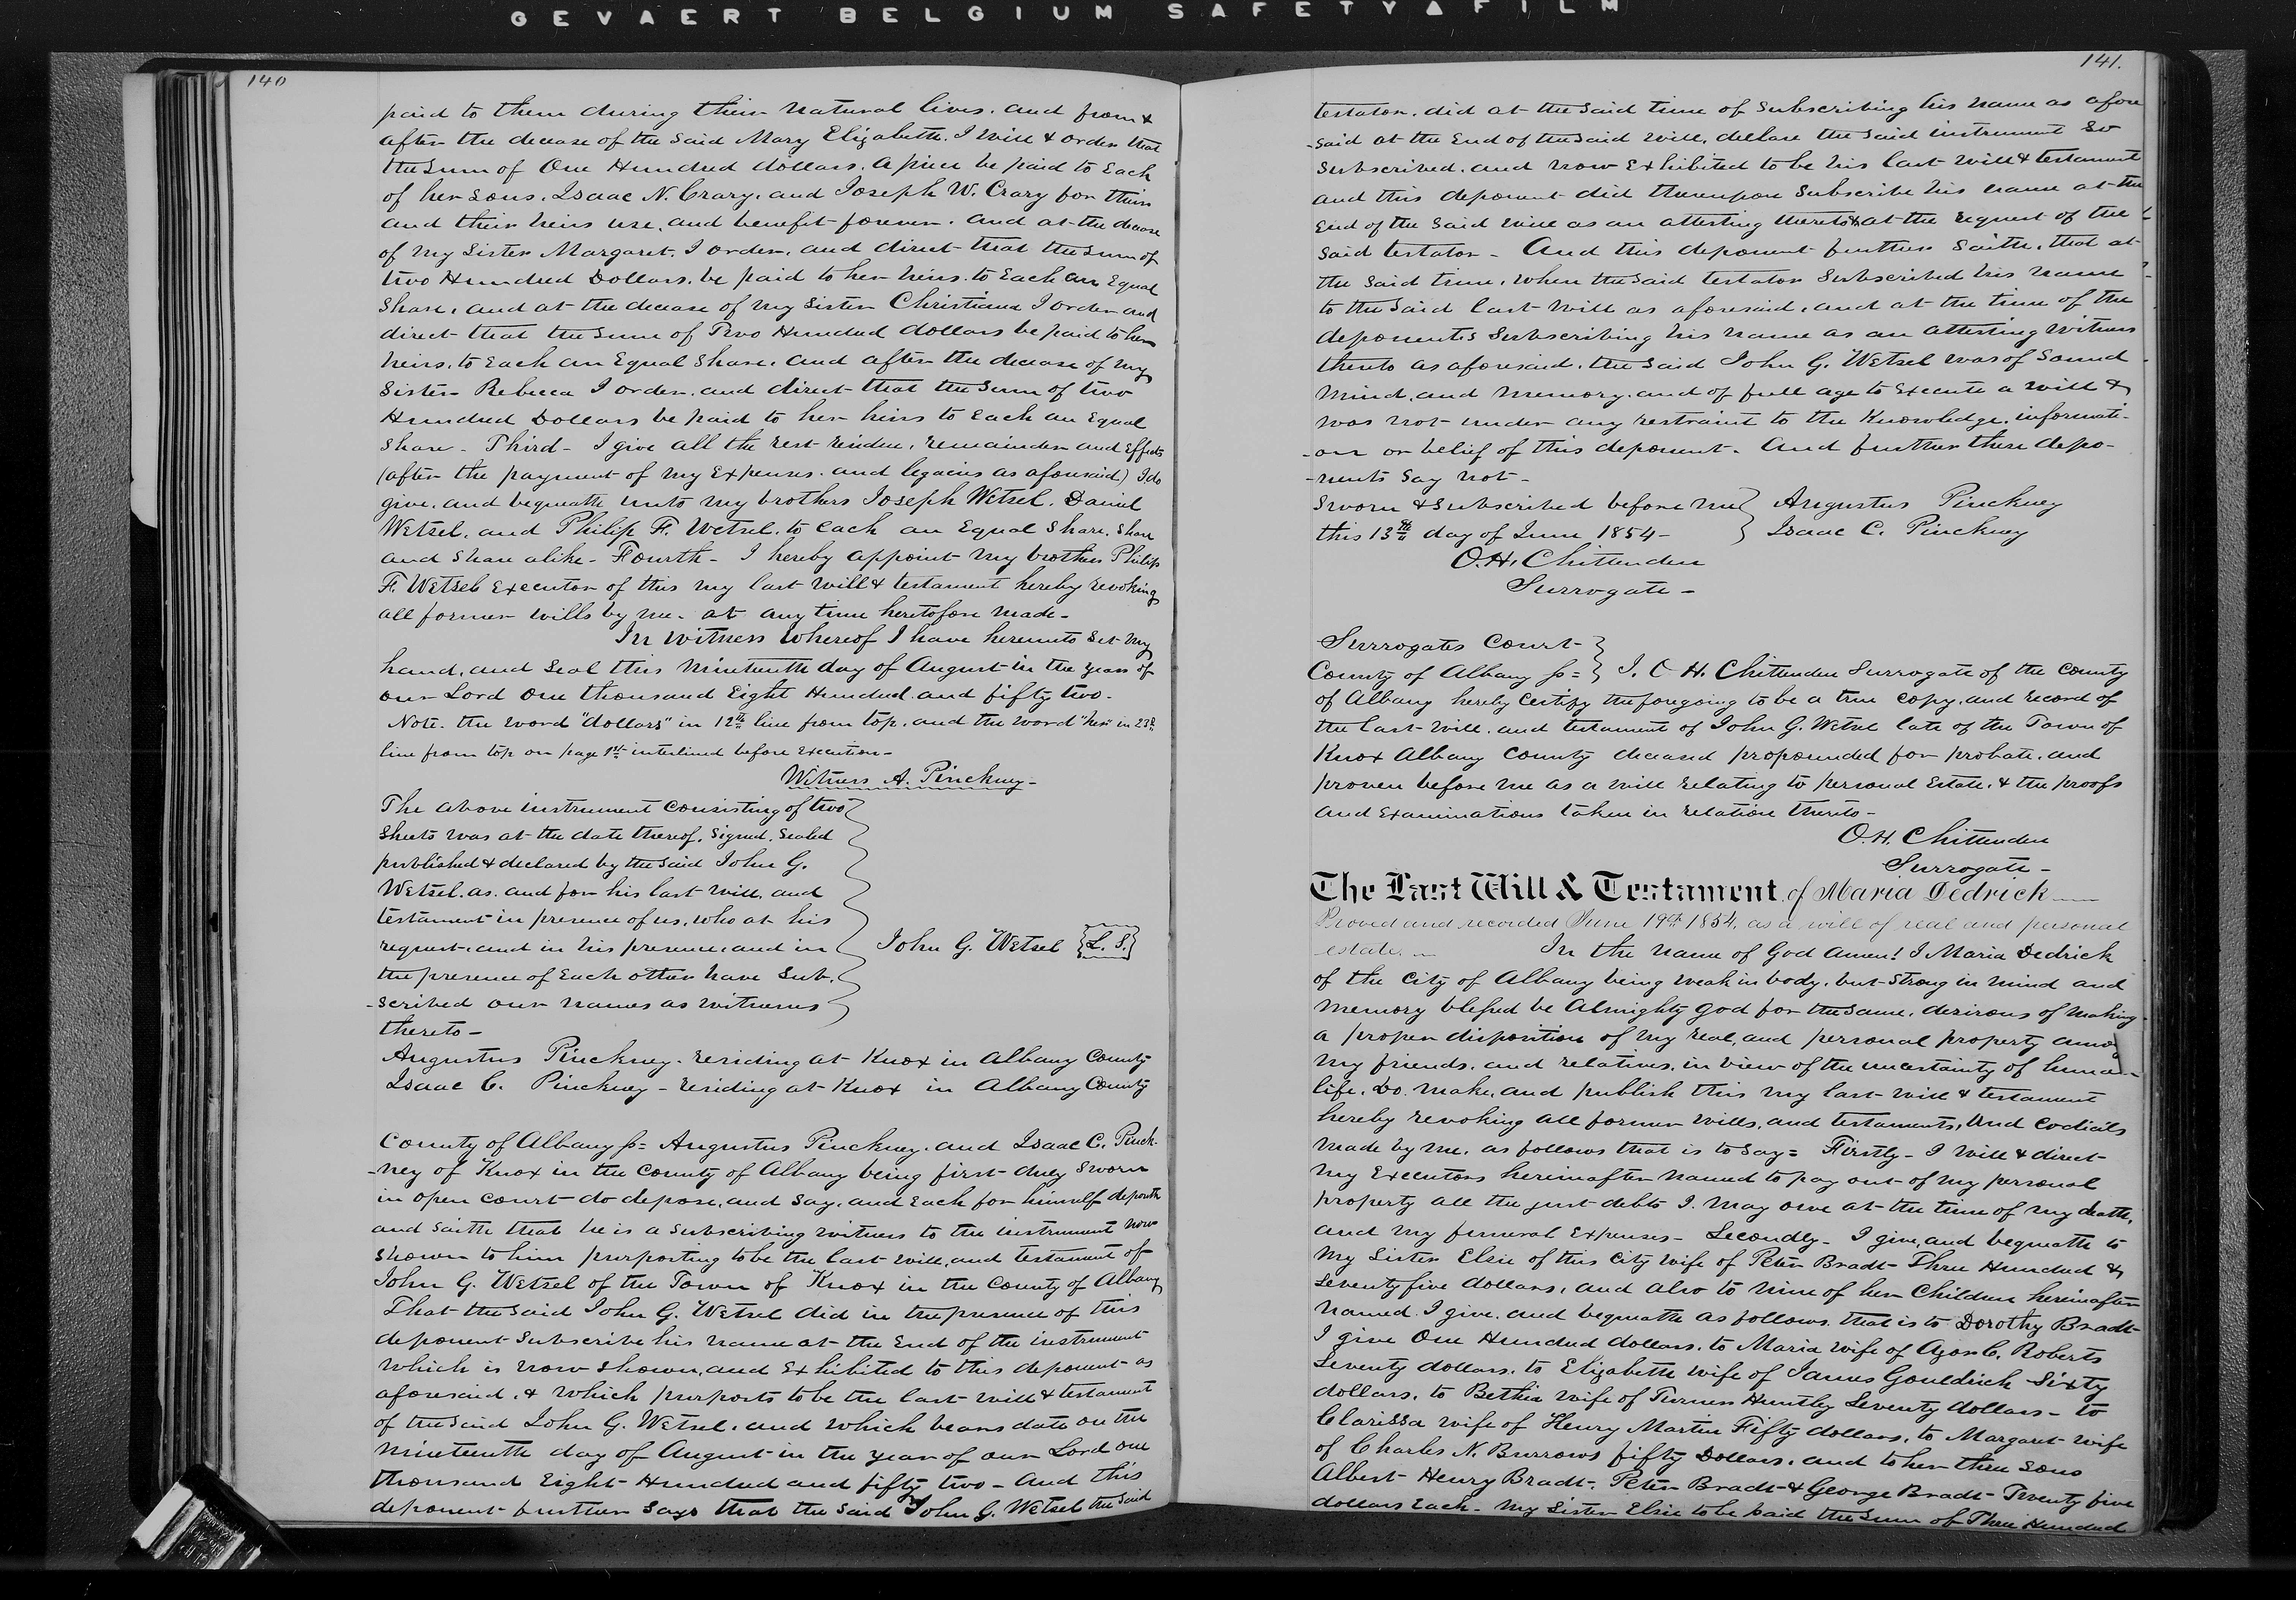 GEVAERT BELGIUM SAFETY FILM
140
paid to them during their natural lives. and from &
after the decease of the said Mary Elizabeth. I will & order that
the sum of One Hundred dollars. a piece be paid to Each
of her sons. Isaac N. Crary. and Joseph W. Crary for their
and their heirs use, and benefit forever. and at the decease
of my Sister Margaret. I order, and direct that the sum of
two Hundred Dollars. be paid to her heirs. to Each an Equal
Share, and at the decease of my Sister Christiana I order and
direct that the Sum of Two Hundred dollars be paid to her
heirs. to Each an Equal Share. and after the decease of my
Sister Rebecca I order. and direct that the Sum of two
Hundred Dollars be paid to her heirs to Each an Equal
Share - Third - I give all the rest residue, remainder and Effects
(after the payment of my Expenses. and legacies as aforesaid) I do
give. and bequeath unto my brothers Joseph Wetsel. Daniel
Wetsel. and Philip F. Wetsel. to Each an Equal Share. Share
and Share alike - Fourth - I hereby appoint my brother Philip
F. Wetsel Executor of this my last will & testament hereby revoking
all former wills by me. at any time heretofore made -
In witness Whereof I have hereunto Set my
hand, and Seal this nineteenth day of August in the year of
our Lord One thousand Eight Hundred and fifty two.
Note. the word "dollars" in 12th line from top. and the word "her" in 23d
line from top on page 1st interlined before Execution -
Witness A. Pinckney -
The above instrument consisting of two
Sheets was at the date thereof. Signed. Sealed
published & declared by the said John G.
Wetsel. as. and for his last will. and
testament in presence of us. who at his
request. and in his presence. and in
John G. Wetsel L. S.
the presence of Each other have Sub-
-scribed our names as witnesses
thereto -
Augustus Pinckney - residing at Knox in Albany County
Isaac C. Pinckney - residing at Knox in Albany County
County of Albany ss= Augustus Pinckney. and Isaac C. Pinck-
-ney of Knox in the County of Albany being first duly Sworn
in open court do depose, and Say. and Each for himself deposeth
and Saith that he is a Subscribing witness to the instrument now
Shown to him purporting to be the last will, and testament of
John G. Wetsel of the Town of Knox in the County of Albany
That the said John G. Wetsel did in the presence of this
deponent Subscribe his name at the End of the instrument
which is now Shown, and Exhibited to this deponent as
aforesaid. & which purports to be the last will & testament
of the said John G. Wetsel. and which bears date on the
nineteenth day of August in the year of our Lord one
thousand Eight Hundred and fifty two - and this
deponent further Says that the said John G. Wetsel the said
141.
testator. did at the said time of Subscribing his name as afore
-said at the End of the said will. declare the said instrument So
Subscribed. and now Exhibited to be his last will & testament
and this deponent did thereupon Subscribe his name at the
End of the said will as an attesting thereto at the request of the
said testator - And this deponent further Saith, that at
the said time, when the said testator Subscribed his name
to the said last will as aforesaid, and at the time of the
deponents Subscribing his name as an attesting witness
thereto as aforesaid. the said John G. Wetsel was of Sound
mind, and memory. and of full age to Execute a will &
was not under any restraint to the Knowledge. informati-
-on or belief of this deponent. And further these depo-
-nents Say not -
Sworn & Subscribed before me Augustus Pinckney
this 13th day of June 1854 - Isaac C. Pinckney
O. H. Chittenden
Surrogate -
Surrogates Court
County of Albany ss= I. O H. Chittenden Surrogate of the County
of Albany hereby certify the foregoing to be a true copy. and record of
the last will. and testament of John G. Wetsel late of the Town of
Knox Albany County deceased propounded for probate. and
proven before me as a will relating to personal Estate. & the proofs
and Examinations taken in relation thereto -
O. H. Chittenden
Surrogate -
The Last Will & Testament of Maria Dedrick
Proved and recorded June 19th 1854, as a will of real and personal
estate. In the name of God Amen! I Maria Dedrick
of the City of Albany being weak in body, but Strong in mind and
memory blessed be Almighty God for the same. desirous of making
a proper disposition of my real, and personal property amo
my friends. and relatives. in view of the uncertainty of human
life. Do. make, and publish this my last will & testament
hereby revoking all former wills, and testaments, And Codicils
made by me, as follows that is to say= Firstly - I will & direct
my Executors hereinafter named to pay out of my personal
property all the just debts I. may owe at the time of my death,
and my funeral Expenses - Secondly - I give, and bequeath to
my Sister Elsie of this City wife of Peter Bradt Three Hundred &
Seventy five dollars, and also to nine of her Children hereinafter
named. I give. and bequeath as follows. that is to Dorothy Bradt
I give One Hundred dollars. to Maria wife of Azor C. Roberts
Seventy dollars. to Elizabeth wife of James Gouldrich Sixty
dollars, to Bethia wife of Turner Huntley Seventy dollars - to
Clarissa wife of Henry Martin Fifty dollars, to Margaret wife
of Charles N. Burrows fifty Dollars, and to her three Sons
Albert Henry Bradt, Peter Bradt & George Bradt Twenty five
dollars Each - My Sister Elsie to be paid the sum of Three Hundred